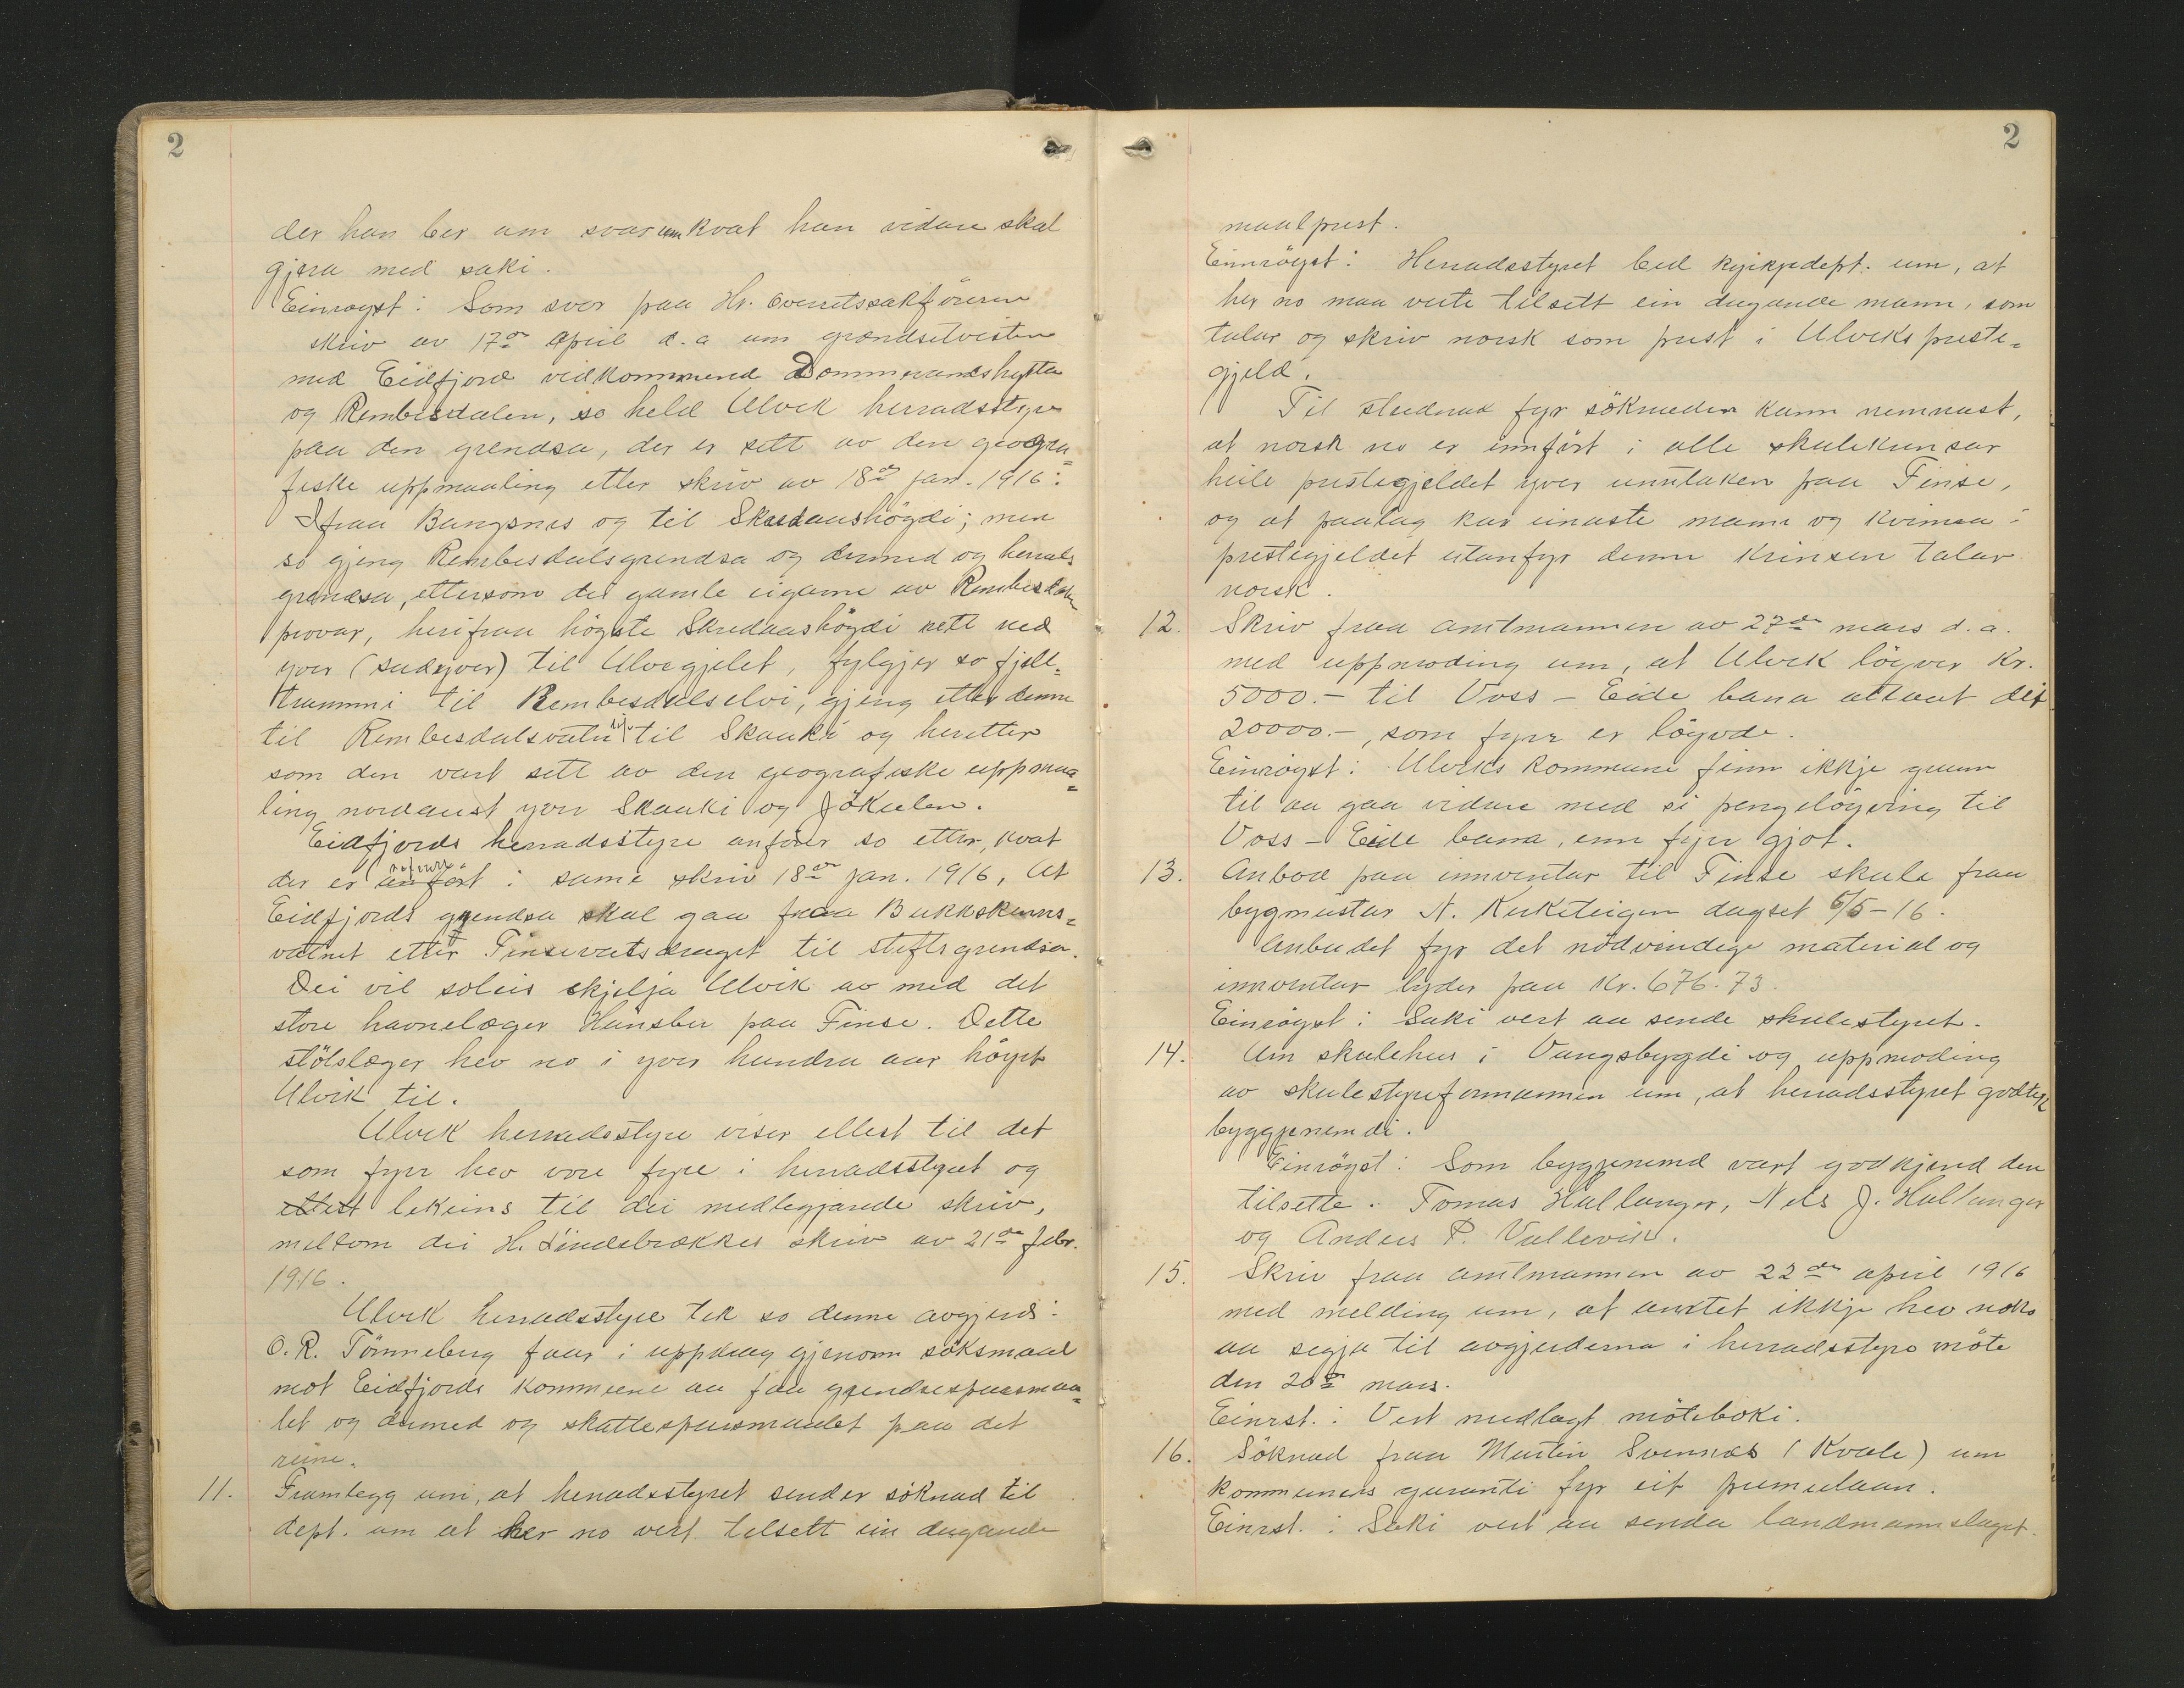 2
der han ber um svar um kvat han vidare skal
gjera med saki.
Einrøyst: Som svar paa Hr. overretssakföraren
skriv av 17de april d.a um grændsetvisten
med Eidfjord vidkommend Dommevandshytta
og Rembesdalen, so held Ulvik herradsstyre
paa den grendsa, der er sett av den geogra=
fiske uppmaaling etter skriv av 18de jan. 1916:
Ifraa Bangsnes og til Skardaushögdi; men
so gjeng Rembesdalsgrendsa og dermed og herads
grendsa, ettersom dei gamle eigarne av Rembesdalen
provar, herifraa högste Skredaashögdi rett ned
yver (sudyver) til Ulvegjelet, fylgjer so fjell=
krummi til Rembesdalselvi, gjeng etter denne
til Rembesdalsvatn til Skaaki og heretter
som den vart sett av den geografiske uppmaa=
ling nordaust yver Skaaki og Jökulen.
Eidfjords herradsstyre anförer so etter, kvat
der er anfört i same skriv 18de jan. 1916, at
Eidfjords grendsa skal gaa fraa Bukkskinns=
vatnet etter Finsevatsdraget til stiftsgrendsa.
Dei vil soleis skjelja Ulvik av med det
store havnelæger Hansbu paa Finse. Dette
stölslæger hev no i yver hundra aar höyrt
Ulvik til.
Ulvik herradsstyre viser ellest til det
som fyrr hev vore fyre i herradsstyret og
ellest likeins til dei medleggjande skriv,
mellom dei H. Lindebrækkes skriv av 21de febr.
1916.
Ulvik herradsstyre tek so denne avgjerd:
O.R. Tönneberg faar i uppdrag gjenom söksmaal
mot Eidfjords kommune aa faa grendsespursmaa=
let og dermed og skattespursmaalet paa det
reine.
11. Framlegg um, at heradsstyret sender söknad til
dept. um at her no vert tilsett ein dugande
2
maalprest.
Einröyst: Herradsstyret bed kyrkjedept. um, at
her no maa verte tilsett ein dugande mann, som
talar og skriv norsk som prest i Ulviks preste=
gjeld.
Til studnad fyr söknaden kann nemnast,
at norsk no er innfört i alle skulekrinsar
heile prestegjeldet yver unntaken paa Finse,
og at paalag kar einaste mann og kvinna i
prestegjeldet utanfyr denne krinsen talar
norsk.
12. Skriv fraa amtmannen av 27de mars d.a.
med uppmoding um, at Ulvik löyver Kr.
5000.- til Voss - Eide bana attaat dei
20000.-, som fyrr er löyvde.
Einröyst: Ulviks kommune finn ikkje grunn
til aa gaa vidare med si pengelöyving til
Voss - Eide bana, enn fyrr gjort.
13. Anbod paa innventar til Finse skule fraa
bygmeistar N. Kirketeigen dagset 6/5-16.
Anbudet fyr det nödvendige material og
innventar lyder paa Kr. 676.73.
Einröyst: Saki vert aa sende skulestyret.
14. Um skulehus i Vangsbygdi og uppmoding
av skulestyreformannen um, at herradsstyret godtek
byggjenemdi.
Einröyst: Som byggjenemd vart godkjend den
tilsette. Tomas Hallanger, Nels J. Hallanger
og Anders P. Vallevik.
15. Skriv fraa amtmannen av 22de april 1916
med melding um, at amtet ikkje hev noko
aa segja til avgjerderna i herradsstyre möte
den 20de mars.
Einrst.: Vert nedlagt möteboki.
16. Söknad fraa Martin Svennæs (Kvale) um
kommunens garanti fyr eit premielaan.
Einrst.: Saki vert aa senda landmannslaget.